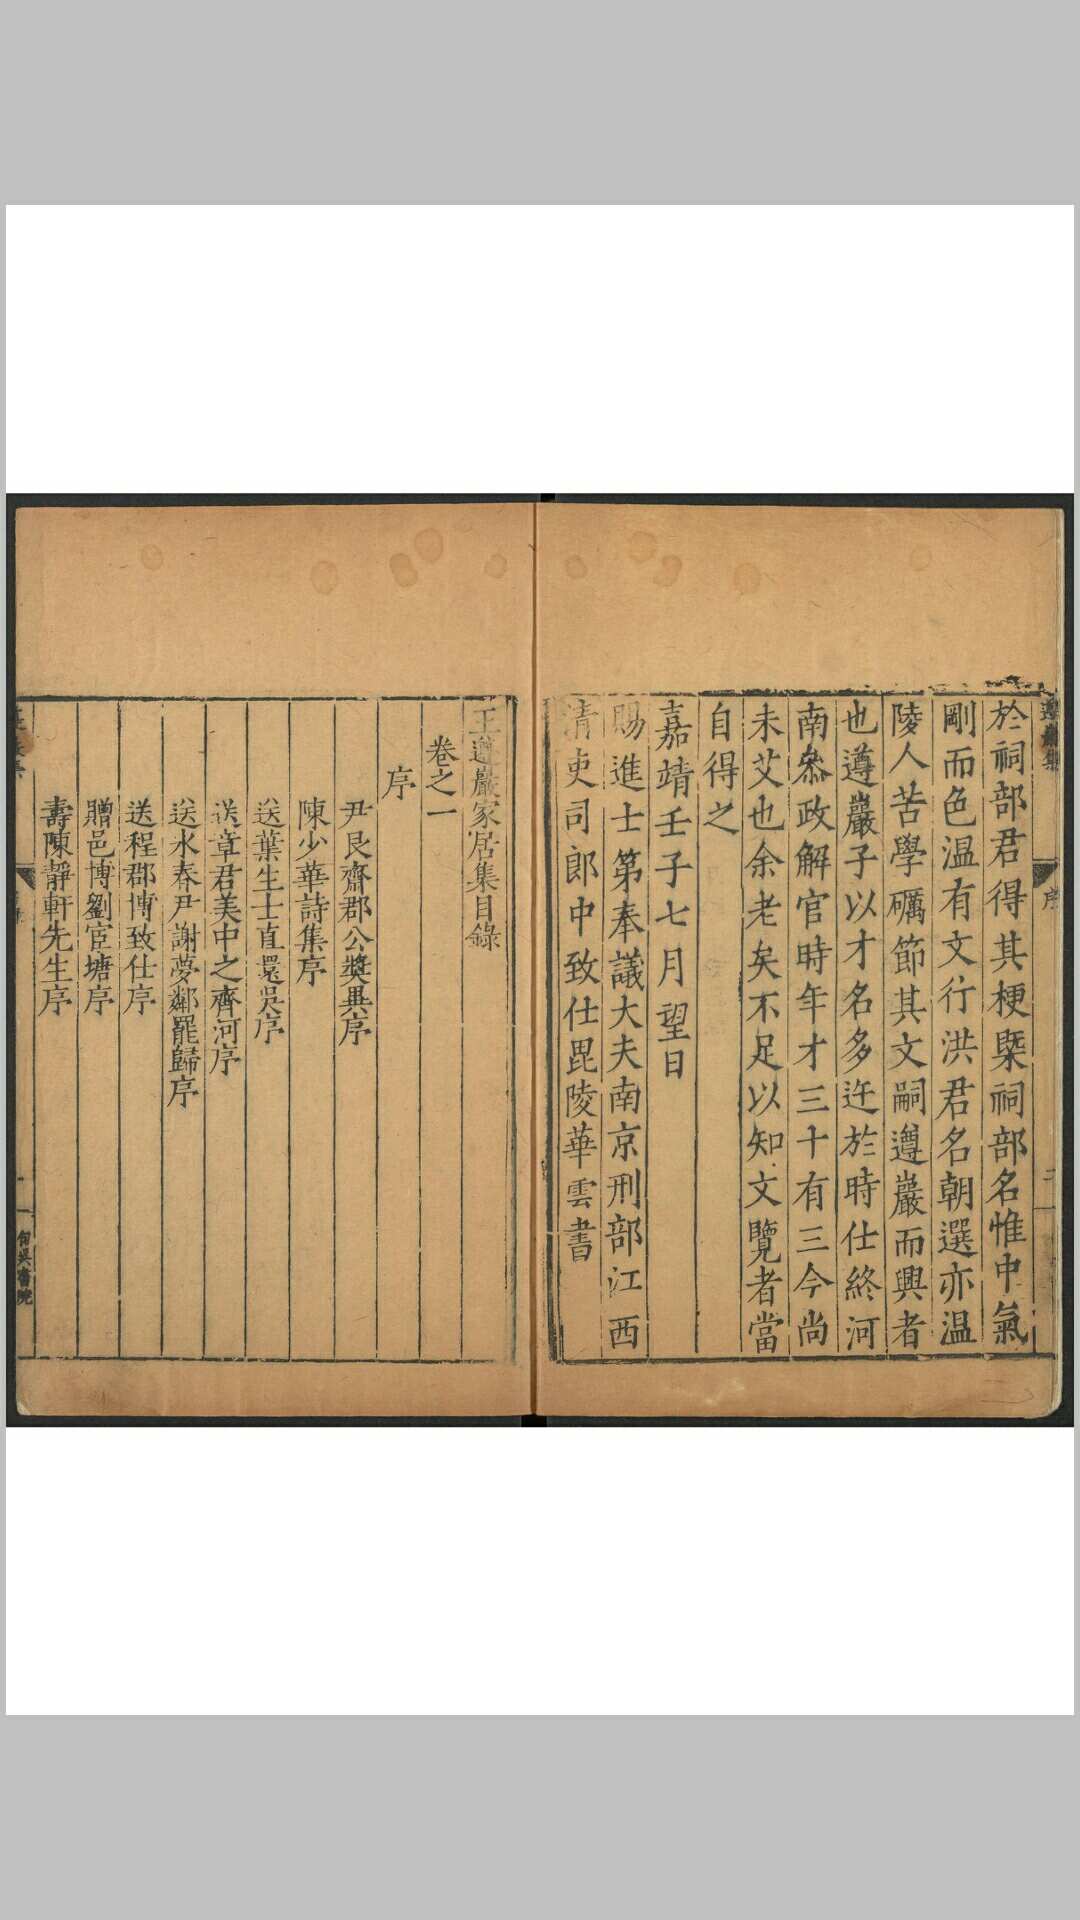 遵巖集
序
於祠部君得其梗槩祠部名惟中氣
剛而色温有文行洪君名朝選亦温
陵人苦學礪節其文嗣遵巖而興者
也遵巖子以才名多迕於時仕終河
南叅政解官時年才三十有三今尚
未艾也余老矣不足以知文覽者當
自得之
嘉靖壬子七月望日
賜進士第奉議大夫南京刑部江西
清吏司郎中致仕毘陵華雲書
王遵巖家居集目錄
卷之一
序
尹艮齋郡公奬異序
陳少華詩集序
送葉生士直還吳序
送章君美中之齊河序
送永春尹謝夢鄰罷歸序
送程郡博致仕序
贈邑博劉宦塘序
壽陳靜軒先生序
一
句吳書院